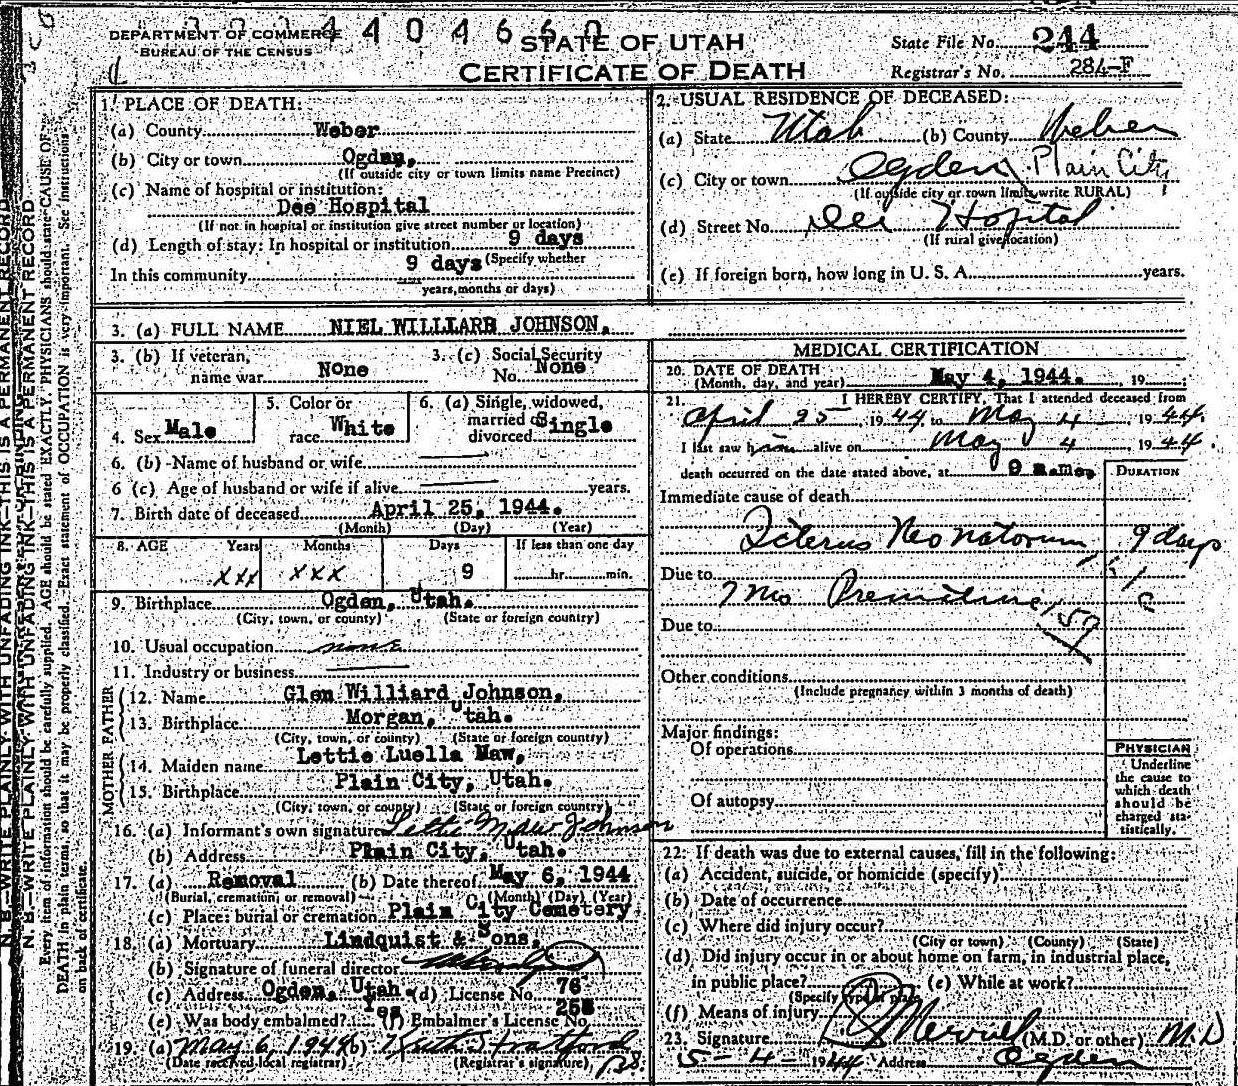 DEPARTMENT OF COMMERCE
BUREAU OF THE CENSUS
STATE OF UTAH
CERTIFICATE OF DEATH
State File No. 244
Registrar's No. 284-F
1. PLACE OF DEATH:
(a) County Weber
(b) City or town Ogden,
(If outside city or town limits name Precinct)
(c) Name of hospital or institution:
Dee Hospital
(If not in hospital or institution give street number or location)
(d) Length of stay: In hospital or institution 9 days
In this community 9 days (Specify whether
years, months or days)
2. USUAL RESIDENCE OF DECEASED:
(a) State Utah (b) County Weber
(c) City or town Ogden Plain City
(If outside city or town limits write RURAL)
(d) Street No. Dee Hospital
(If rural give location)
(e) If foreign born, how long in U. S. A. years.
3. (a) FULL NAME NIEL WILLIARD JOHNSON,
3. (b) If veteran, name war None
3. (c) Social Security No. None
4. Sex Male
5. Color or race White
6. (a) Single, widowed, married or divorced Single
6. (b) Name of husband or wife
6 (c) Age of husband or wife if alive years.
7. Birth date of deceased April 25, 1944.
(Month) (Day) (Year)
8. AGE Years Months Days If less than one day
xxx xxx 9 hr. min.
9. Birthplace Ogden, Utah.
(City, town, or county) (State or foreign country)
10. Usual occupation none
11. Industry or business
FATHER
12. Name Glen Williard Johnson,
13. Birthplace Morgan, Utah.
(City, town, or county) (State or foreign country)
MOTHER
14. Maiden name Lettie Luella Maw,
15. Birthplace Plain City, Utah.
(City, town, or county) (State or foreign country)
16. (a) Informant's own signature Lettie Maw Johnson
(b) Address Plain City, Utah.
17. (a) Removal (b) Date thereof May 6, 1944
(Burial, cremation, or removal) (Month) (Day) (Year)
(c) Place: burial or cremation Plain City Cemetery
18. (a) Mortuary Lindquist & Sons,
(b) Signature of funeral director
(c) Address Ogden, Utah. (d) License No. 76
(e) Was body embalmed? Yes (f) Embalmer's License No. 258
19. (a) May 6, 1944 (b)
(Date received local registrar) (Registrar's signature)
MEDICAL CERTIFICATION
20. DATE OF DEATH
(Month, day, and year) May 4, 1944. , 19
21. I HEREBY CERTIFY, That I attended deceased from
April 25 1944 to May 4 1944.
I last saw him alive on May 4 1944.
death occurred on the date stated above, at 9 a.m.
DURATION
Immediate cause of death
Icterus Neonatorum 9 days
Due to
7 mo
Due to 159
Other conditions
(Include pregnancy within 3 months of death)
Major findings:
Of operations
Of autopsy
PHYSICIAN
Underline
the cause to
which death
should be
charged sta-
tistically.
22. If death was due to external causes, fill in the following:
(a) Accident, suicide, or homicide (specify)
(b) Date of occurrence
(c) Where did injury occur?
(City or town) (County) (State)
(d) Did injury occur in or about home on farm, in industrial place,
in public place? (e) While at work?
(Specify type of place)
(f) Means of injury
23. Signature Merrill (M.D. or other) M.D
5-4-1944 Address Ogden
N. B.—WRITE PLAINLY WITH UNFADING INK—THIS IS A PERMANENT RECORD
Every item of information should be carefully supplied. AGE should be stated EXACTLY. PHYSICIANS should state CAUSE OF
DEATH in plain terms, so that it may be properly classified. Exact statement of OCCUPATION is very important. See instructions
on back of certificate.